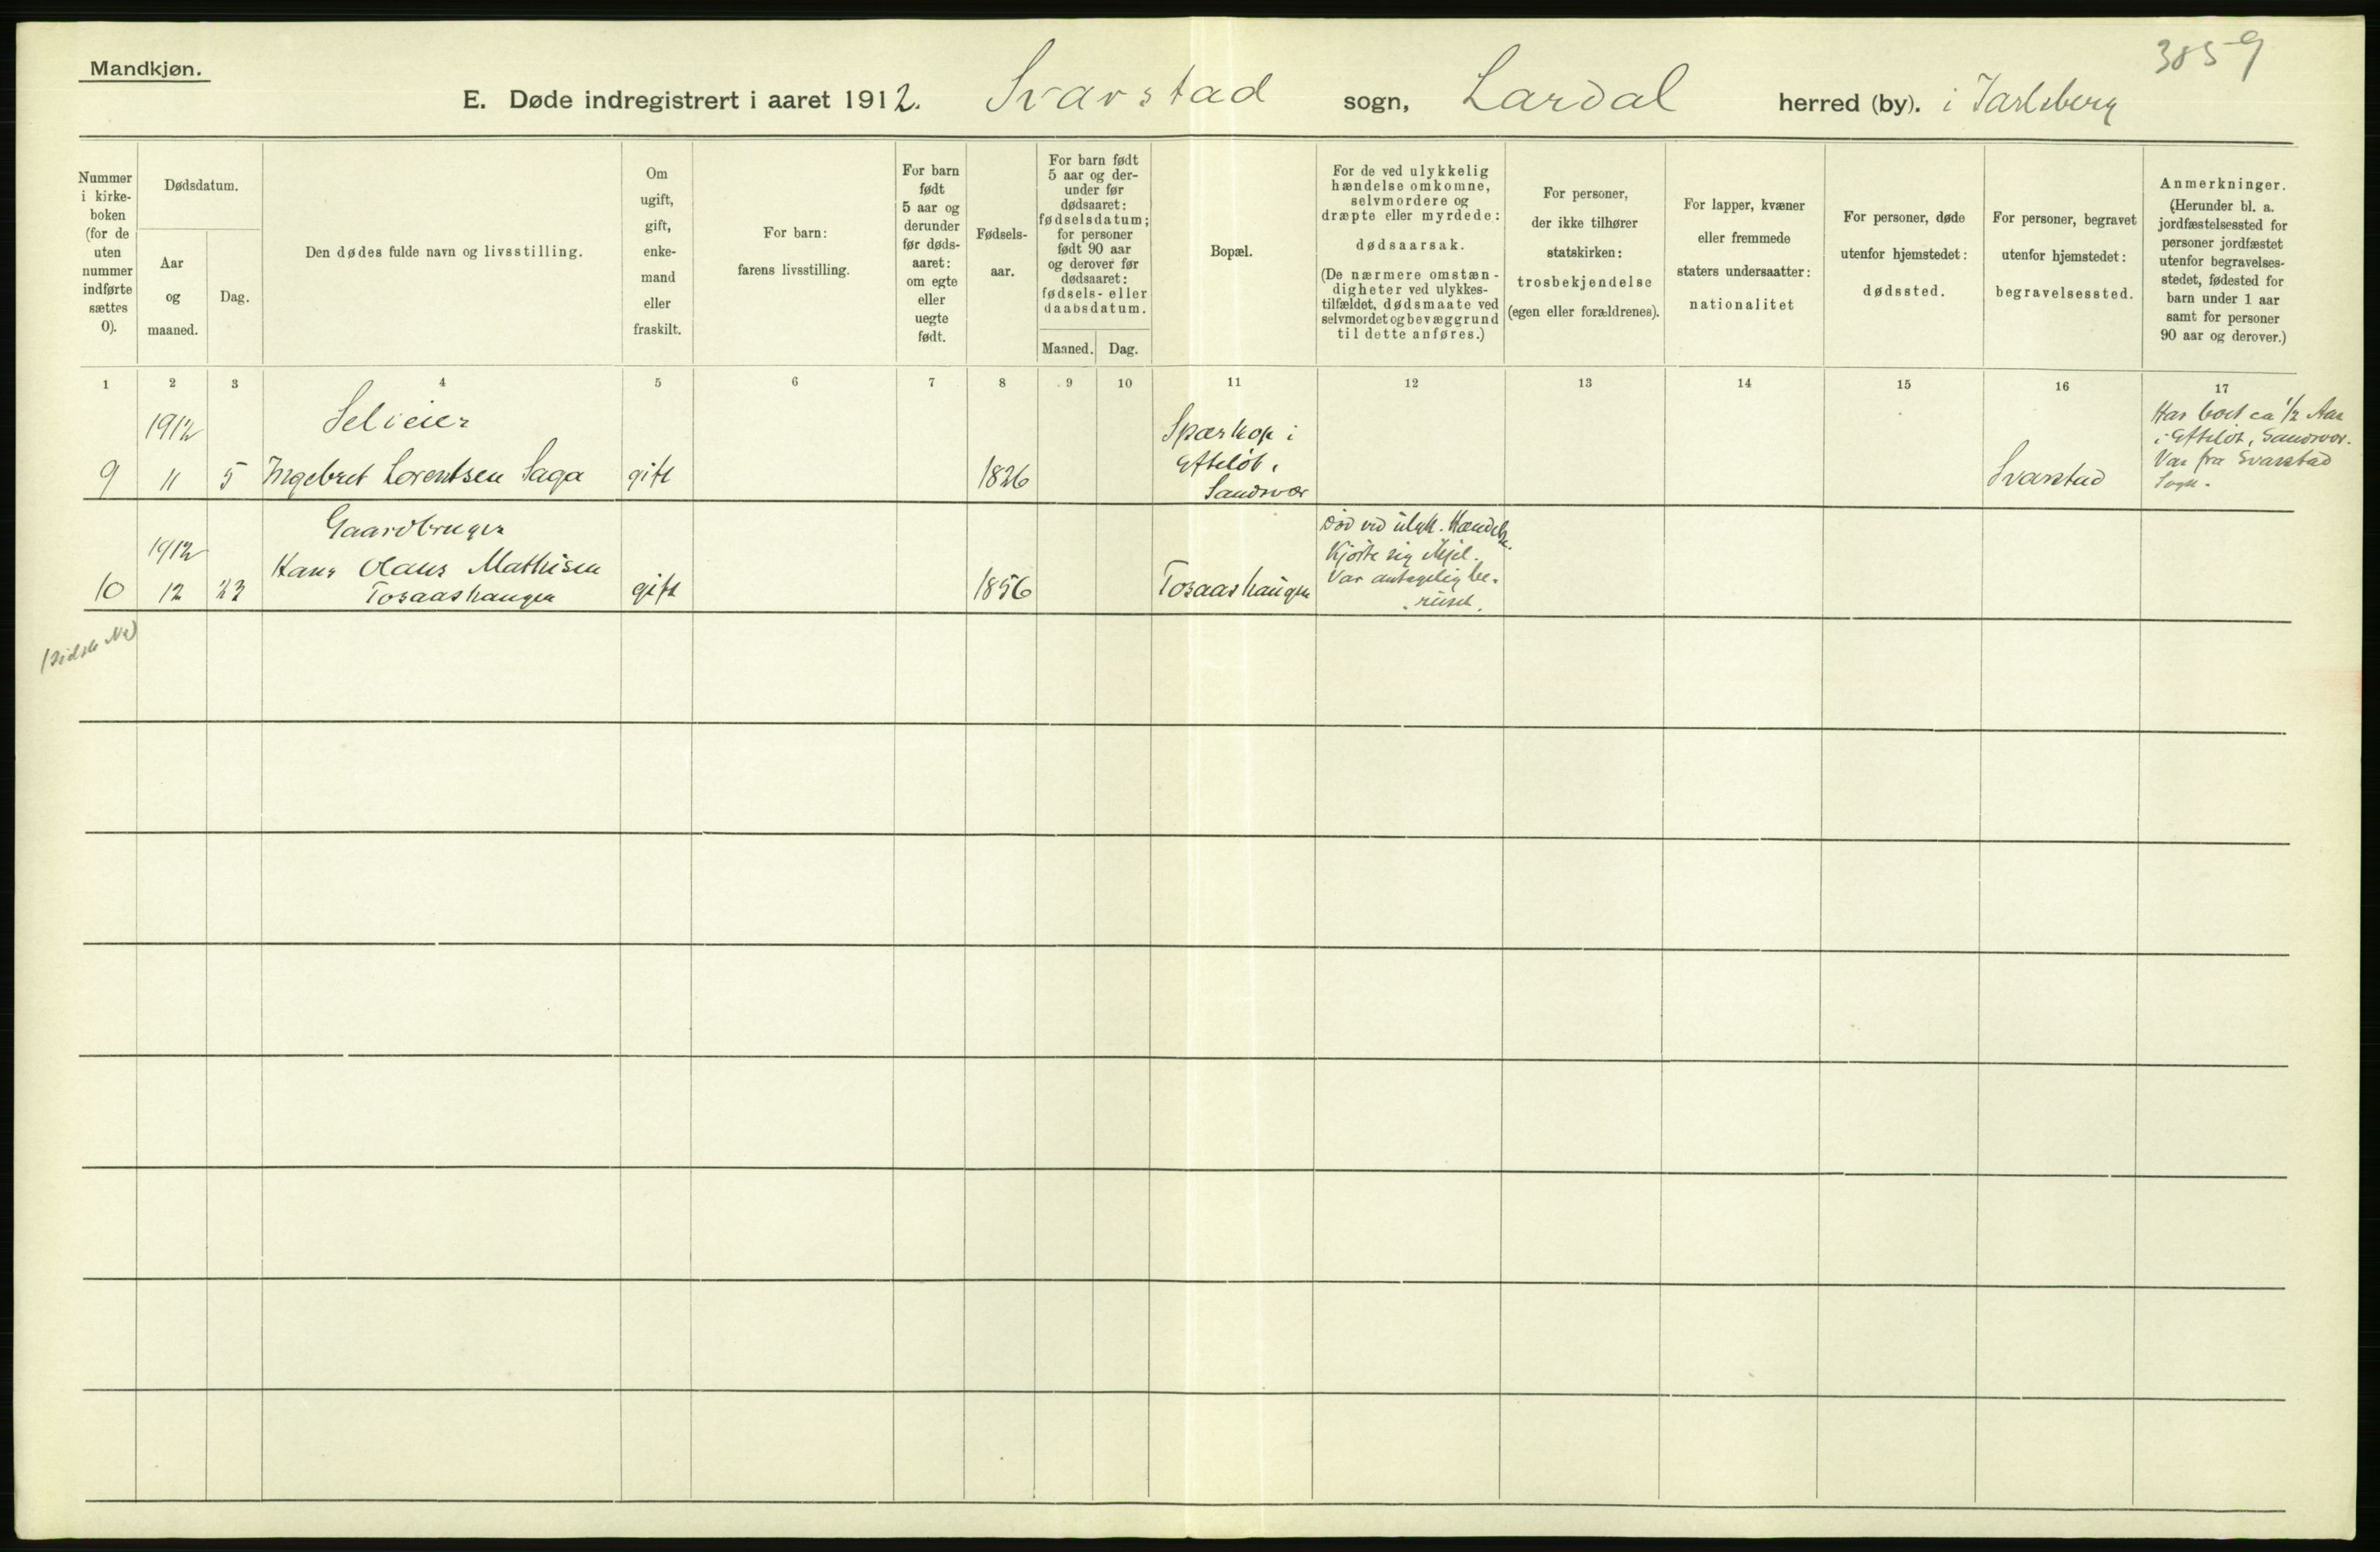 Mandkjøn.
3859
E. Døde indregistrert i aaret 1912. Svarstad sogn, Lardal herred (by). i Jarlsberg
Nummer
i kirke-
boken
(for de
uten
nummer
indførte
sættes
0).
Dødsdatum.
Aar
og
maaned.
Dag.
Den dødes fulde navn og livsstilling.
Om
ugift,
gift,
enke-
mand
eller
fraskilt.
For barn:
farens livsstilling.
For barn
født
5 aar og
derunder
før døds-
aaret:
om egte
eller
uegte
født.
Fødsels-
aar.
For barn født
5 aar og der-
under før
dødsaaret:
fødselsdatum;
for personer
født 90 aar
og derover før
dødsaaret:
fødsels- eller
daabsdatum.
Maaned.
Dag.
Bopæl.
For de ved ulykkelig
hændelse omkomne,
selvmordere og
dræpte eller myrdede:
dødsaarsak.
(De nærmere omstæn-
digheter ved ulykkes-
tilfældet, dødsmaate ved
selvmordet og bevæggrund
til dette anføres.)
For personer,
der ikke tilhører
statskirken:
trosbekjendelse
(egen eller forældrenes).
For lapper, kvæner
eller fremmede
staters undersaatter:
nationalitet
For personer, døde
utenfor hjemstedet:
dødssted.
For personer, begravet
utenfor hjemstedet:
begravelsessted.
Anmerkninger.
(Herunder bl. a.
jordfæstelsessted for
personer jordfæstet
utenfor begravelses-
stedet, fødested for
barn under 1 aar
samt for personer
90 aar og derover.)
1 2 3 4 5 6 7 8 9 10 11 12 13 14 15 16 17
9
1912
11
5
Selveier
Ingebret Lorentsen Saga
gift
1826
i
Efteløt,
Sandsvær
Svarstad
Har boet ca 1/2 Aar
i Efteløt, Sandsvær.
Var fra Svarstad
Sogn.
10
1912
12
23
Gaardbruger
Hans Olaus Mathisen
Toraashaugen
gift
1856
Toraashaugen
Død ved ulykk. Hændelse.
Kjørte sig ihjel.
Var antagelig be-
ruset.
(sidste No)